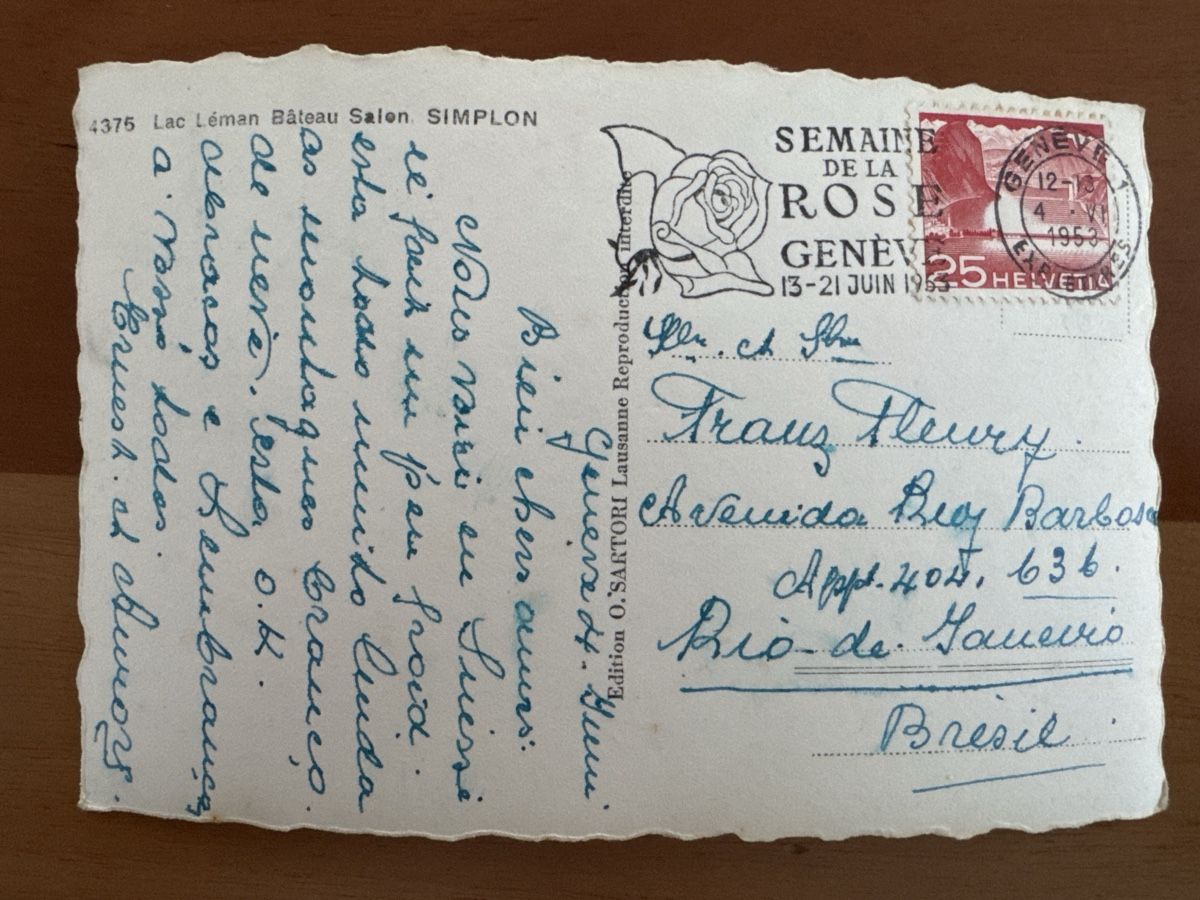 4375 Lac Léman Bâteau Salon SIMPLON
Geneve 4. Juni
Bien chers amis:
Nous voici en Suisse
il fait un peu froid.
esta todo munito linda
as montagnes branco
de neve. esta O.K.
abraços e Lembrança
a vossé todos.
Ernest. et
Edition O. SARTORI Lausanne Reproduction interdite
SEMAINE
DE LA
ROSE
GENÈVE
13-21 JUIN 1953
GENÈVE 1
12-13
4 . VI
1953
25 HELVETIA
Mr. et Mme
Franz Fleury.
Avenida Ruy Barbosa
Appt. 404. 636.
Rio-de-Janeiro
Brésil